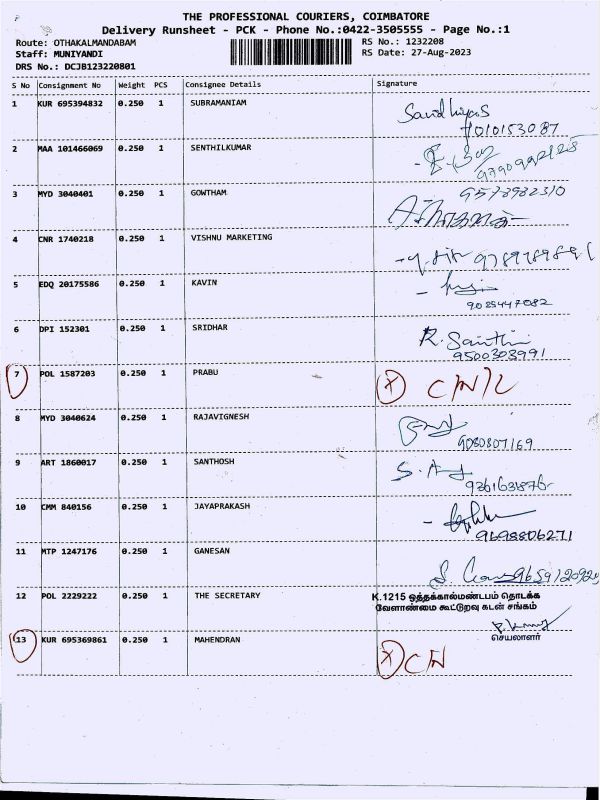 THE PROFESSIONAL COURIERS, COIMBATORE
Delivery Runsheet - PCK - Phone No.:0422-3505555 - Page No.:1
Route: OTHAKALMANDABAM RS No.: 1232208
Staff: MUNIYANDI RS Date: 27-Aug-2023
DRS No.: DCJB123220801
S No Consignment No Weight PCS Consignee Details Signature
1 KUR 695394832 0.250 1 SUBRAMANIAM
2 MAA 101466069 0.250 1 SENTHILKUMAR
9578982310
3 MYD 3040401 0.250 1 GOWTHAM
4 CNR 1740218 0.250 1 VISHNU MARKETING
5 EDQ 20175586 0.250 1 KAVIN
9025447082
6 DPI 152301 0.250 1 SRIDHAR R. Santhi
9500303991
7 POL 1587203 0.250 1 PRABU X
8 MYD 3040624 0.250 1 RAJAVIGNESH
9080807169
9 ART 1860017 0.250 1 SANTHOSH
10 CMM 840156 0.250 1 JAYAPRAKASH
9698806271
11 MTP 1247176 0.250 1 GANESAN
12 POL 2229222 0.250 1 THE SECRETARY K.1215 ஒத்தக்கால்மண்டபம் தொடக்க
வேளாண்மை கூட்டுறவு கடன் சங்கம்
செயலாளர்
13 KUR 695369861 0.250 1 MAHENDRAN X CN